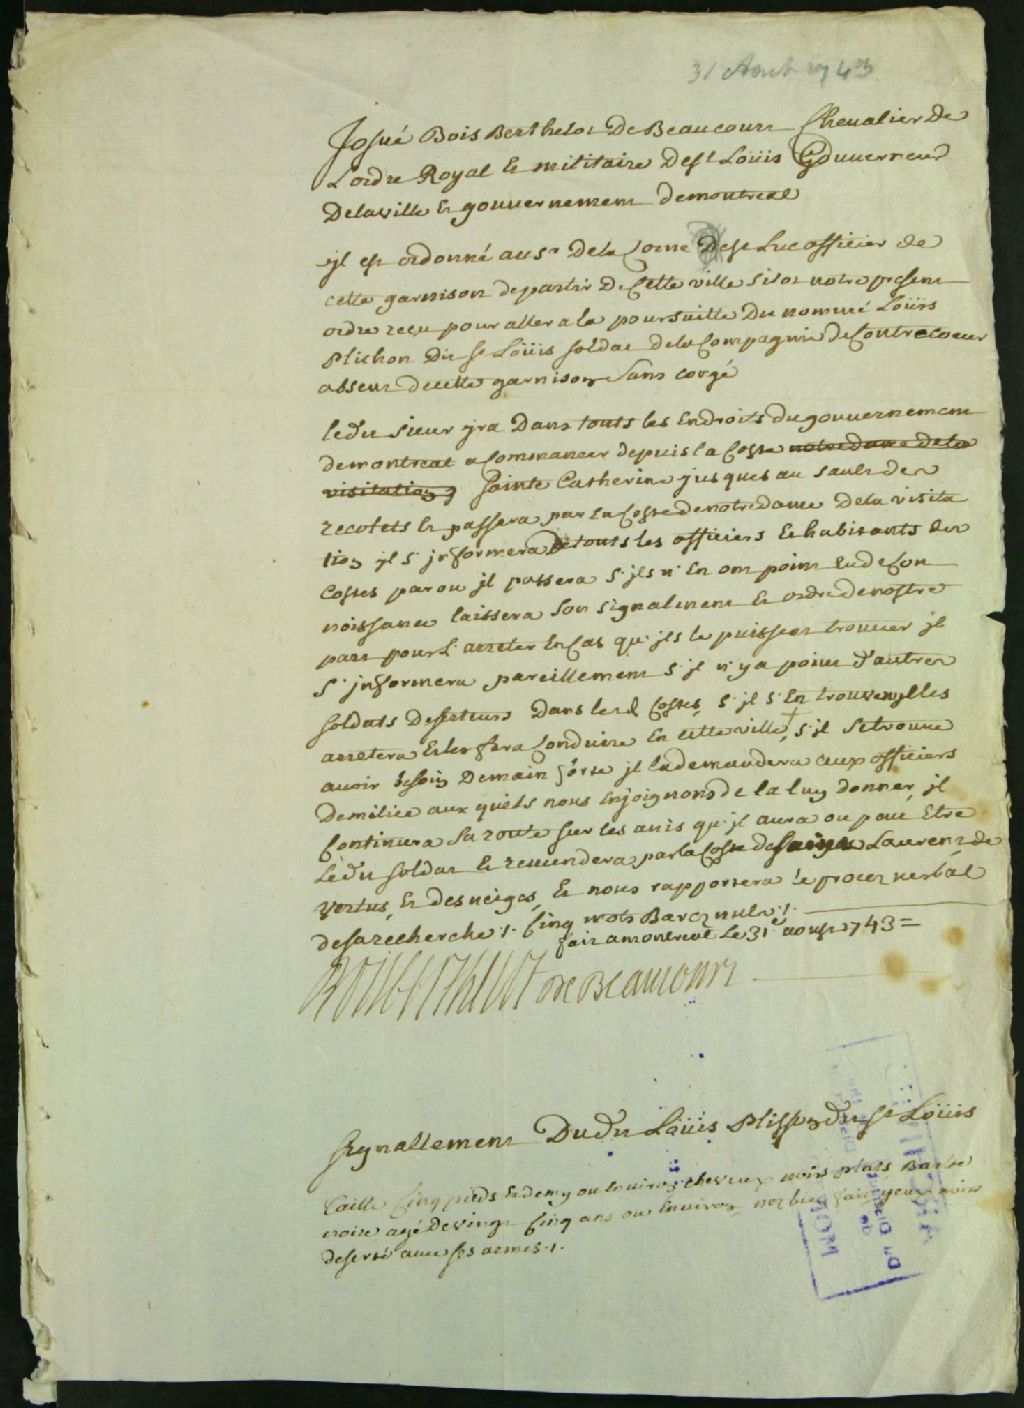 31 Aoust 1743
Josué Bois Berthelot De Beaucourt Chevalier de
L'ordre Royal et militaire De st Loüis Gouverneur
De la ville et gouvernement de montreal
il est ordonné au sr De la Corne De st Luc officier de
cette garnison de partir De Cette ville sitot notre present
ordre reçu pour aller a la poursuitte Du nommé Loüis
Plichon Dit st Loüis soldat de la Compagnie De Contrecoeur
absent de cette garnison sans congé
ledit sieur yra Dans touts les Endroits du gouvernement
de montreal a Commancer depuis la Coste notre dame de la
visitation Sainte Catherine jusques au sault des
recolets et passera par la Coste de notre dame De la visita
tion il s'informera de touts les officiers et habitants des
Costes par ou il passera s'ils n'En ont point Eu de Con
noissance laissera son signalment et ordre de nostre
part pour L'arreter En Cas qu'ils le puissent trouver il
s'informera pareillement s'il n'y a point d'autres
soldats deserteurs Dans lesd Costes, s'il s'En trouve il les
arretera et les fera Conduire En cette ville, s'il se trouve
avoir besoin De main forte il la demandera aux officiers
De milice aux quels nous Enjoignons de la luy donner, il
Continura sa route sur les avis qu'il aura ou peut Etre
Ledit soldat et reviendera par la Coste de Saint Laurent de
Vertus, et des neiges, et nous rapportera le procez verbal
de sa recherche ./. Cinq mots Barez nuls ./.
fait a montreal Le 31e aoust 1743 =
Boisberthelot de Beaucourt
Signallement Dudit Loüis Plisson dit st Loüis
Taille Cinq pieds et demy ou Environ cheveux noirs plats Barbe
noire agé De vingt Cinq ans ou Environ, nez bien fait, yeux noirs
deserté avec ses armes ./.